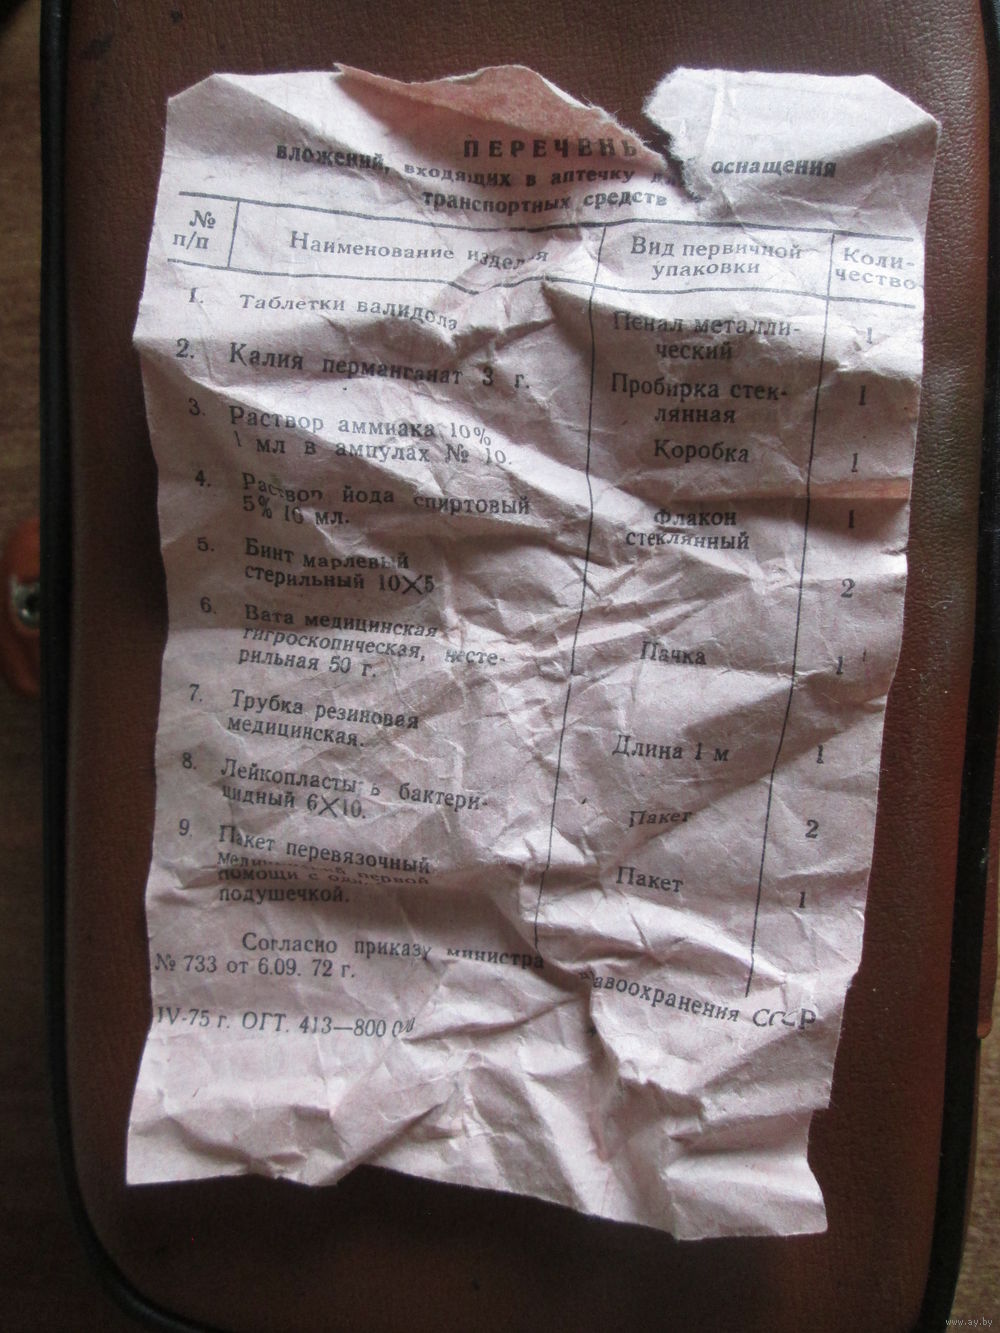 ПЕРЕЧЕНЬ
вложений, входящих в аптечку оснащения
транспортных средств
№ п/п Наименование изделия Вид первичной упаковки Коли-чество
1. Таблетки валидола Пенал металли-ческий 1
2. Калия перманганат 3 г. Пробирка стек-лянная 1
3. Раствор аммиака 10%
1 мл в ампулах № 10. Коробка 1
4. Раствор йода спиртовый
5% 10 мл. Флакон стеклянный 1
5. Бинт марлевый
стерильный 10×5 2
6. Вата медицинская
гигроскопическая, несте-
рильная 50 г. Пачка 1
7. Трубка резиновая
медицинская. Длина 1 м 1
8. Лейкопластырь бактери-
цидный 6×10. Пакет 2
9. Пакет перевязочный
медицинский первой
помощи с одной
подушечкой. Пакет 1
Согласно приказу министра здравоохранения СССР
№ 733 от 6.09. 72 г.
IV-75 г. ОГТ. 413—800 000
www.ay.by